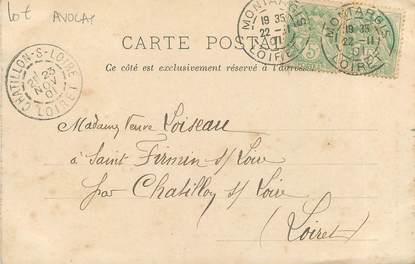 lot AVOCAT
CARTE POSTALE
Ce côté est exclusivement réservé à l'adresse
MONTARGIS
19 35
22 -11
01
LOIRET
MONTARGIS
19 35
22 -11
01
LOIRET
5
CHATILLON-S-LOIRE
23
NOV
01
LOIRET
Madame Veuve Loiseau
à Saint Firmin s/ Loire
par Chatillon s/ Loire
(Loiret)